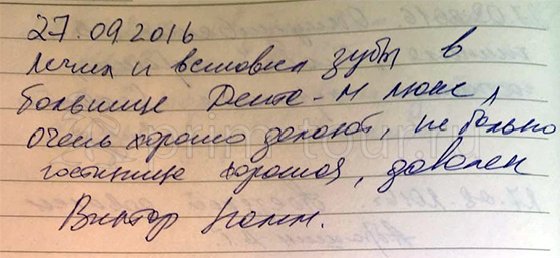 27.09.2016
Лечил и вставил зубы в
больнице Дента-М люкс,
очень хорошо делают, не больно
гостиница хорошая, доволен
Виктор